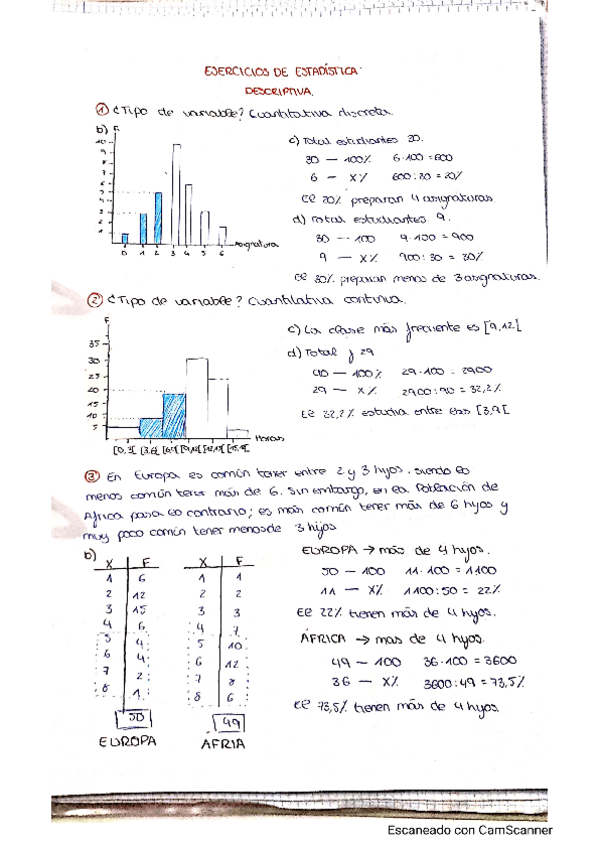 EJERCICIOS DE ESTADÍSTICA
DESCRIPTIVA.
① ¿Tipo de variable? Cuantitativa discreta
b) F
10
9
8
7
6
5
4
3
2
1
0 1 2 3 4 5 6
Asignatura
c) Total estudiantes 30.
30 — 100% 6·100 = 600
6 — X% 600:30 = 20%
el 20% preparan 4 asignaturas
d) Total estudiantes 9.
30 — 100 9·100 = 900
9 — X% 900:30 = 30%
el 30% preparan menos de 3 asignaturas.
② ¿Tipo de variable? Cuantitativa continua.
F
35
30
25
20
15
10
5
[0,3[ [3,6[ [6,9[ [9,12[
Horas
c) La clase más frecuente es [9,12[
d) Total y 29
90 — 100% 29·100 = 2900
29 — X% 2900:90 = 32,2%
el 32,2% estudia entre [3,9[
③ En Europa es común tener entre 2 y 3 hijos, siendo lo
menos común tener más de 6. Sin embargo, en la Población de
África pasa lo contrario; es más común tener más de 6 hijos y
muy poco común tener menos de 3 hijos
b) X F X F
1 6 1 1
2 12 2 2
3 15 3 3
4 6 4 7
5 4 5 10
6 4 6 12
7 2 7 8
8 1 8 6
50 49
EUROPA AFRIA
EUROPA → más de 4 hijos.
50 — 100 11·100 = 1100
11 — X% 1100:50 = 22%
el 22% tienen más de 4 hijos.
ÁFRICA → mas de 4 hijos.
49 — 100 36·100 = 3600
36 — X% 3600:49 = 73,5%
el 73,5% tienen más de 4 hijos
Escaneado con CamScanner